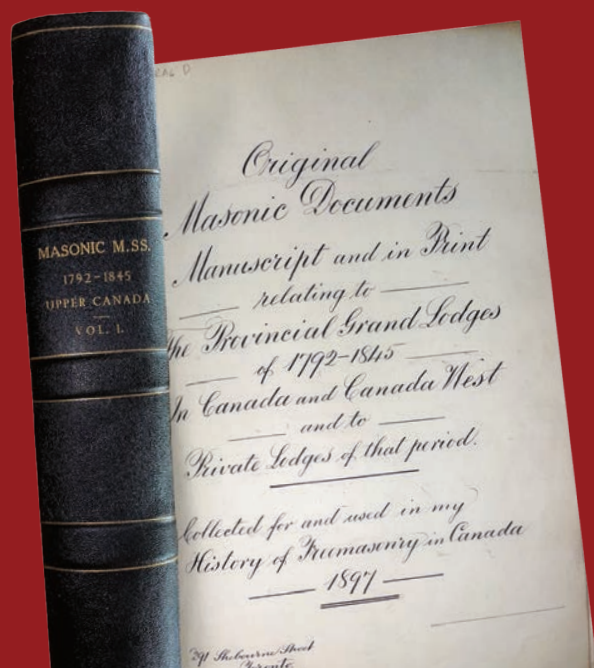 MASONIC M.SS.
1792-1845
UPPER CANADA
VOL. I.
Original
Masonic Documents
Manuscript and in Print
relating to
The Provincial Grand Lodges
of 1792-1845
In Canada and Canada West
and to
Private Lodges of that period.
Collected for and used in my
History of Freemasonry in Canada
1897
291 Sherbourne Street
Toronto